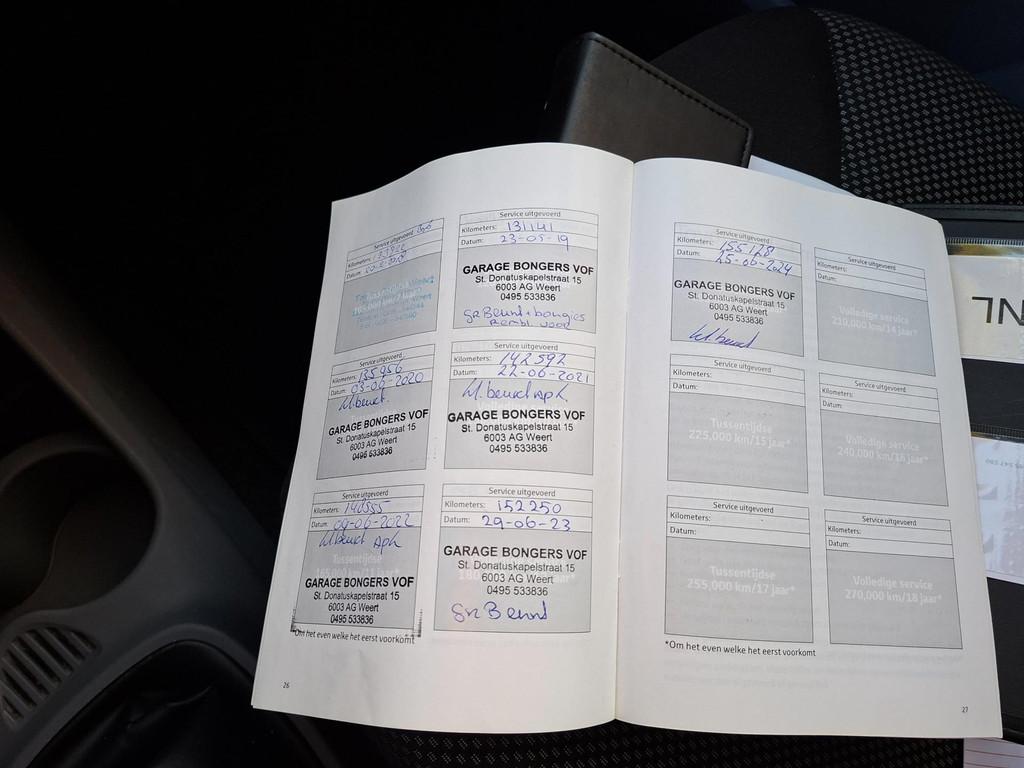 Service uitgevoerd
Kilometers:
Datum:
Service uitgevoerd
Kilometers: 131141
Datum: 23-05-19
GARAGE BONGERS VOF
St. Donatuskapelstraat 15
6003 AG Weert
0495 533836
gr Beurt + bougies
Service uitgevoerd
Kilometers: 135956
Datum: 03-06-2020
kl. beurt.
GARAGE BONGERS VOF
St. Donatuskapelstraat 15
6003 AG Weert
0495 533836
Service uitgevoerd
Kilometers: 142592
Datum: 22-06-2021
kl. beurt apk.
GARAGE BONGERS VOF
St. Donatuskapelstraat 15
6003 AG Weert
0495 533836
Service uitgevoerd
Kilometers:
Datum: 09-06-2022
kl beurt apk
Tussentijdse
GARAGE BONGERS VOF
St. Donatuskapelstraat 15
6003 AG Weert
0495 533836
Service uitgevoerd
Kilometers: 152250
Datum: 29-06-23
GARAGE BONGERS VOF
St. Donatuskapelstraat 15
6003 AG Weert
0495 533836
gr Beurt
*Om het even welke het eerst voorkomt
26
Service uitgevoerd
Kilometers: 155128
Datum: 25-06-2024
GARAGE BONGERS VOF
St. Donatuskapelstraat 15
6003 AG Weert
0495 533836
kl. beurt
Service uitgevoerd
Kilometers:
Datum:
Volledige service
210,000 km/14 jaar*
Service uitgevoerd
Kilometers:
Datum:
Tussentijdse
225,000 km/15 jaar*
Service uitgevoerd
Kilometers:
Datum:
Volledige service
240,000 km/16 jaar*
Service uitgevoerd
Kilometers:
Datum:
Tussentijdse
255,000 km/17 jaar*
Service uitgevoerd
Kilometers:
Datum:
Volledige service
270,000 km/18 jaar*
*Om het even welke het eerst voorkomt
27
NL